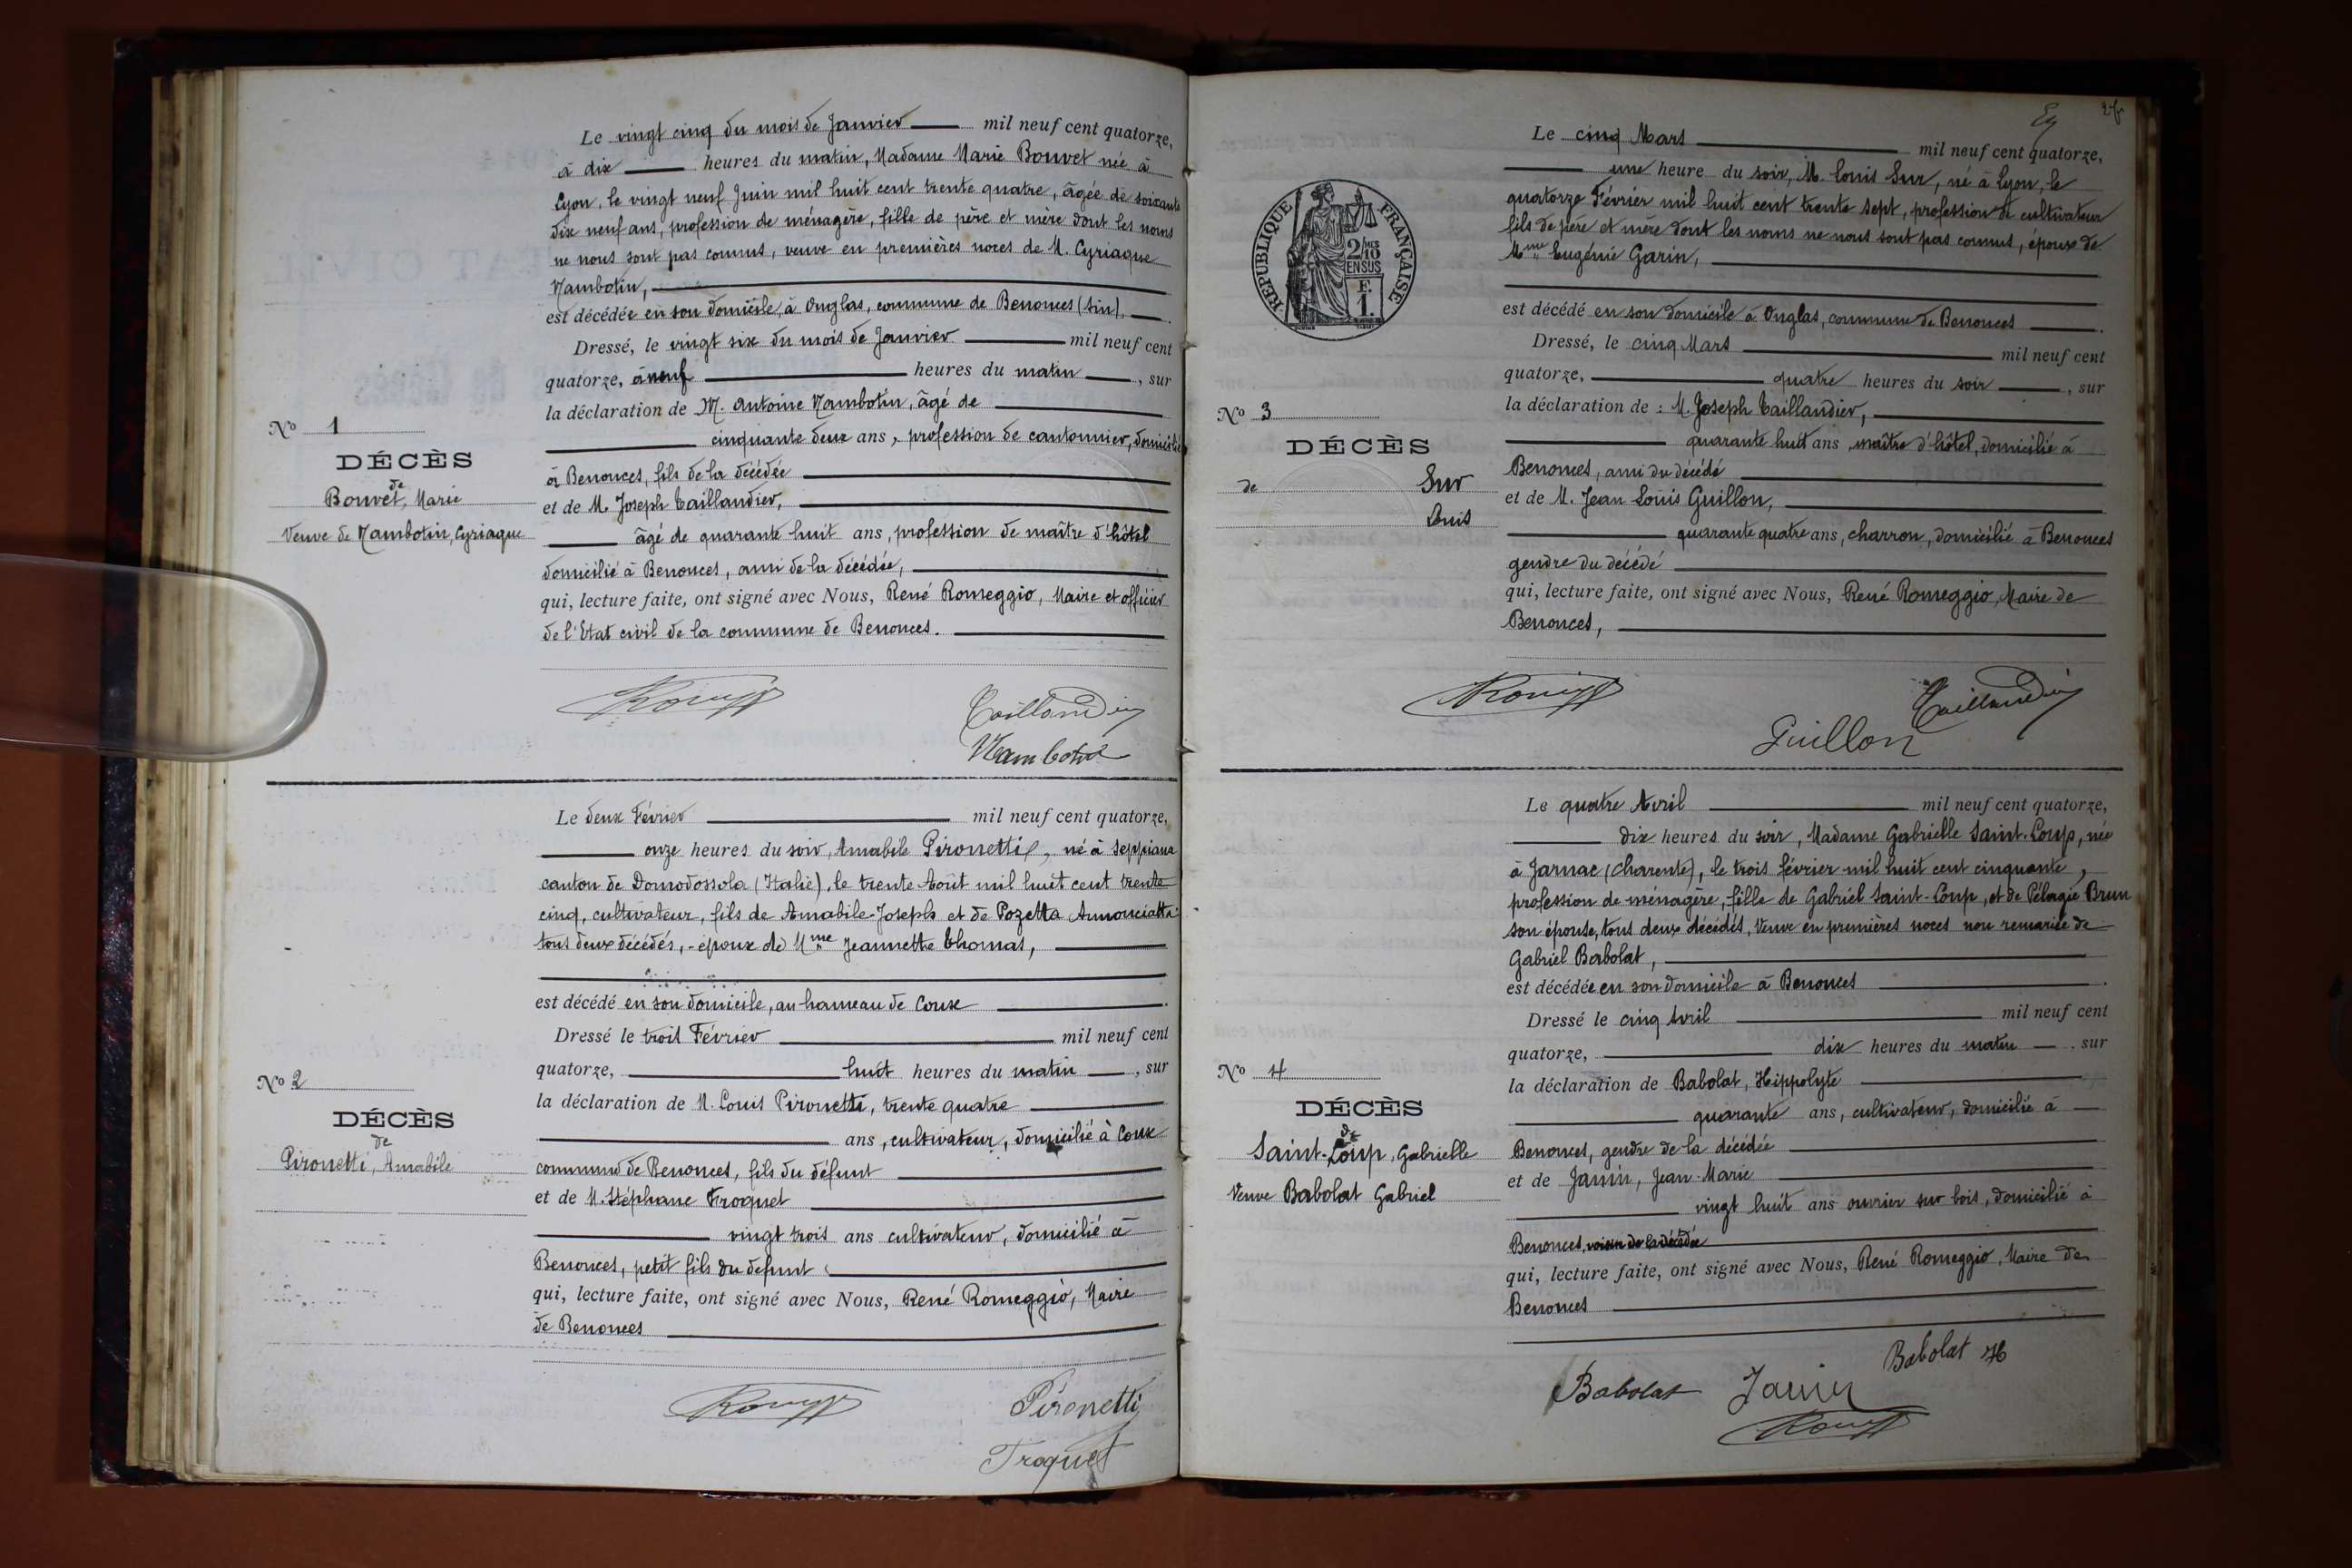 Le vingt cinq du mois de Janvier mil neuf cent quatorze,
à dix heures du matin, Madame Marie Bouvet née à
Lyon, le vingt neuf Juin mil huit cent trente quatre, âgée de soixante
dix neuf ans, profession de ménagère, fille de père et mère dont les noms
ne nous sont pas connus, veuve en premières noces de M. Cyriaque
Mambotin,
est décédée en son domicile, à Onglas, commune de Benonces (Ain).
Dressé, le vingt six du mois de Janvier mil neuf cent
quatorze, à neuf heures du matin, sur
la déclaration de M. Antoine Mambotin, âgé de
cinquante deux ans, profession de cantonnier, domicilié
à Benonces, fils de la décédée
et de M. Joseph Taillandier,
âgé de quarante huit ans, profession de maître d'hôtel
domicilié à Benonces, ami de la décédée,
qui, lecture faite, ont signé avec Nous, René Romeggio, Maire et officier
de l'Etat civil de la commune de Benonces.
No 1
DÉCÈS
de
Bouvet, Marie
Veuve de Mambotin, Cyriaque
Taillandier
Mambotin
Le deux Février mil neuf cent quatorze,
onze heures du soir, Amabile Pironetti, né à Seppiana
canton de Domodossola (Italie), le trente Août mil huit cent trente
cinq, cultivateur, fils de Amabile Joseph et de Pozetta Annonciatta
tous deux décédés, - époux de Mme Jeannette Thomas,
est décédé en son domicile, au hameau de Coux
Dressé le trois Février mil neuf cent
quatorze, huit heures du matin, sur
la déclaration de M. Louis Pironetti, trente quatre
ans, cultivateur, domicilié à Coux
commune de Benonces, fils du défunt
et de M. Stéphane Troquet
vingt trois ans cultivateur, domicilié à
Benonces, petit fils du défunt
qui, lecture faite, ont signé avec Nous, René Romeggio, Maire
de Benonces
No 2
DÉCÈS
de
Pironetti, Amabile
Pironetti
Troquet
Le cinq Mars mil neuf cent quatorze,
une heure du soir, M. Louis Sur, né à Lyon, le
quatorze Février mil huit cent trente sept, profession de cultivateur
fils de père et mère dont les noms ne nous sont pas connus, époux de
Mme Eugénie Garin,
est décédé en son domicile à Onglas, commune de Benonces
Dressé, le cinq Mars mil neuf cent
quatorze, quatre heures du soir, sur
la déclaration de : M. Joseph Taillandier,
quarante huit ans, maître d'hôtel, domicilié à
Benonces, ami du décédé
et de M. Jean Louis Guillon,
quarante quatre ans, charron, domicilié à Benonces
gendre du décédé
qui, lecture faite, ont signé avec Nous, René Romeggio, Maire de
Benonces,
RÉPUBLIQUE FRANÇAISE
2/10 MES
EN SUS
F.
1.
No 3
DÉCÈS
de Sur
Louis
Taillandier
Guillon
Le quatre Avril mil neuf cent quatorze,
dix heures du soir, Madame Gabrielle Saint-Loup, née
à Jarnac (Charente), le trois février mil huit cent cinquante,
profession de ménagère, fille de Gabriel Saint-Loup, et de Pélagie Brun
son épouse, tous deux décédés, Veuve en premières noces non remariée de
Gabriel Babolat,
est décédée en son domicile à Benonces
Dressé le cinq Avril mil neuf cent
quatorze, dix heures du matin, sur
la déclaration de Babolat, Hippolyte
quarante ans, cultivateur, domicilié à
Benonces, gendre de la décédée
et de Janin, Jean-Marie
vingt huit ans ouvrier sur bois, domicilié à
Benonces, voisin de la décédée
qui, lecture faite, ont signé avec Nous, René Romeggio, Maire de
Benonces
No 4
DÉCÈS
de
Saint-Loup, Gabrielle
Veuve Babolat Gabriel
Babolat H
Babolat Janin